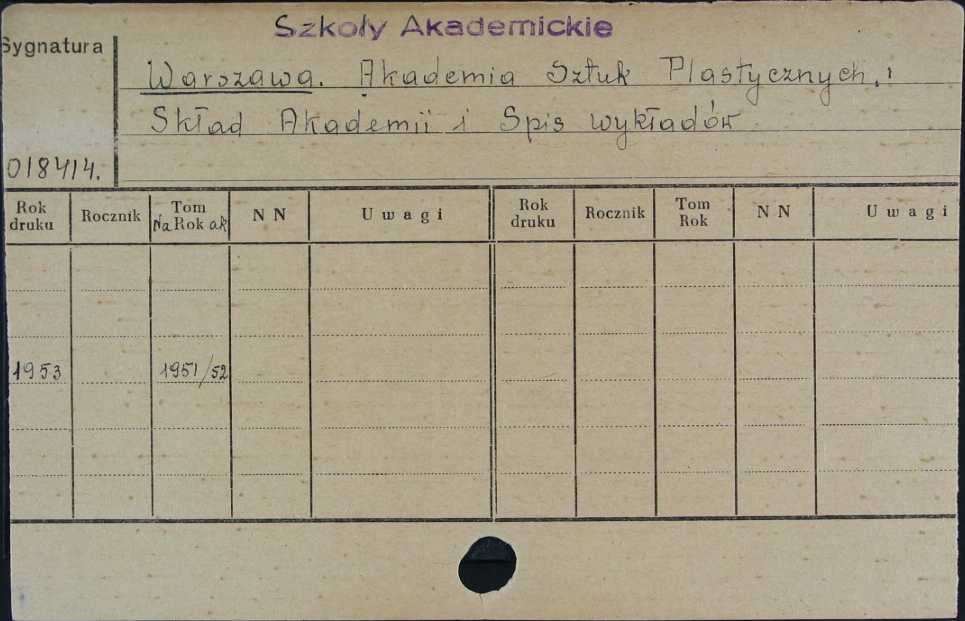 Szkoły Akademickie
Sygnatura
Warszawa. Akademia Sztuk Plastycznych.
Skład Akademii i Spis wykładów
018414.
Rok druku Rocznik Tom Na Rok ak NN Uwagi Rok druku Rocznik Tom Rok NN Uwagi
1953 1951/52